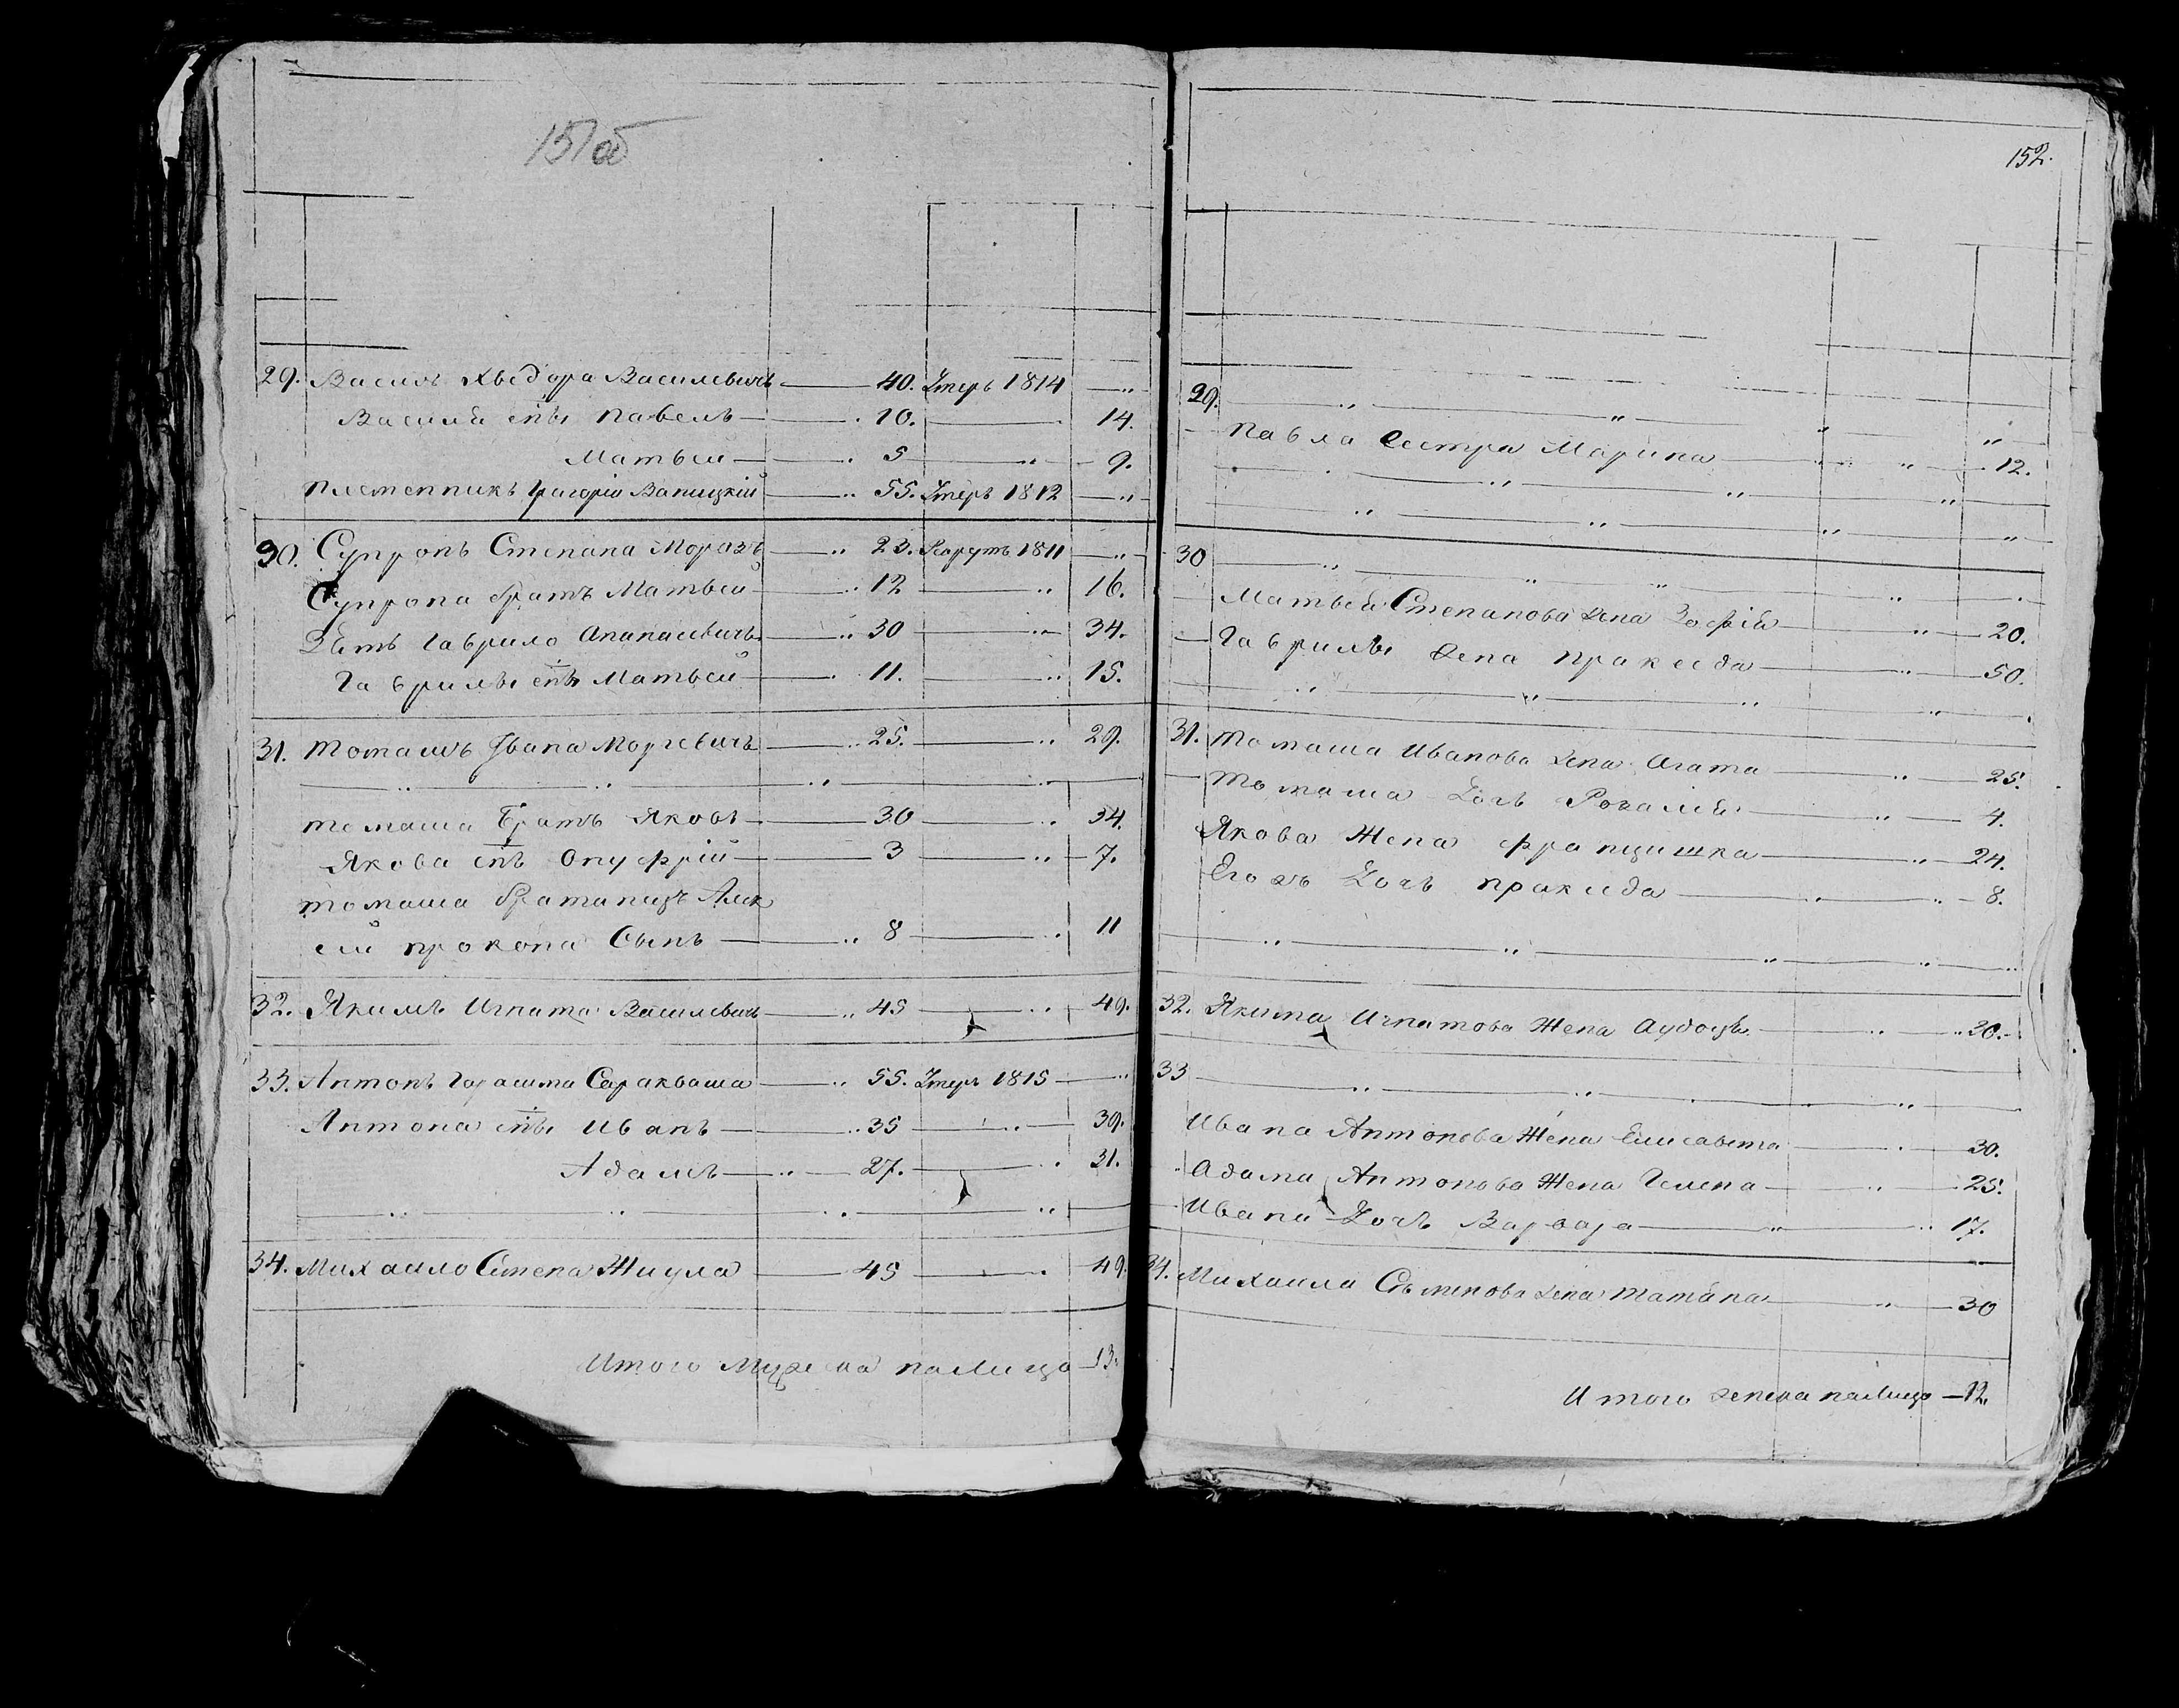 151об
29. Василь Хведора Василевичъ 40. Умеръ 1814 „
Василя сн̅ы Павелъ 10. 14.
Матвей 5 „ 9.
Племенникъ Григорій Ваницкій „ 55. Умеръ 1812 „
30. Супронъ Степана Морозъ „ 23. Рекрутъ 1811 „
Супрона братъ Матвей 12 „ 16.
Зять Гаврило Апанасевичъ „ 30 „ 34.
Гаврилы сн̅ъ Матвей 11. „ 15.
31. Томашъ Ивана Моргевичъ „ 25. „ 29.
„ „ „ „
Томаша Братъ Яковъ 30 „ 34.
Якова сн̅ъ Онуфрій 3 „ 7.
Томаша братаницъ Алек
сей Прокопа Сынъ „ 8 „ 11
32. Якимъ Игната Василевичъ „ 45 „ 49.
33. Антонъ Гарашма Саракваша „ 55. Умеръ 1815 „
Антона сн̅ы Иванъ „ 35 „ 39.
Адамъ „ 27. „ 31.
„ „ „ „
34. Михайло Семена Жигула 45 „ 49.
Итого Мужеска налицо 13.
152.
29. „ „ „ „
Павла Сестра Марина „ „ 12.
„ „ „
„ „ „ „
30 „ „ „ „
Матвея Степанова жена Зофія „ 20.
Гаврилы жена Пракседа „ 50.
„ „ „ „
31. Томаша Иванова жена Агата „ 25.
Томаша дочь Розалія „ 4.
Якова Жена Францишка „ 24.
Егожъ дочь Пракседа „ 8.
„ „ „ „ „
32. Якима Игнатова Жена Аудоця „ „ 30.
33 „ „ „ „
Ивана Антонова Жена Елисавета 30.
Адама Антонова Жена Гелена „ 25.
Ивана дочь Варвара „ „ 17.
34. Михайла Семенова жена Татана „ 30
Итого женска налицо 12.